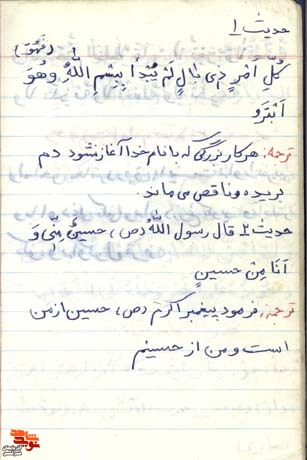 حدیث ۱
(فَهُوَ)
کُلِّ اَمْرٍ ذی بٰالٍ لَمْ یُبْدأ بِبِسْمِ اللّٰهِ وَهُوَ
اَبْتَرو
ترجمه: هر کار بزرگی که با نام خدا آغاز نشود دم
بریده و ناقص می ماند.
حدیث ۲ قال رسول اللّٰهُ (ص)، حسینٌ مِنّی وَ
اَنَا مِنْ حسینٍ
ترجمه: فرمود پیغمبر اکرم (ص)، حسین از من
است و من از حسینم